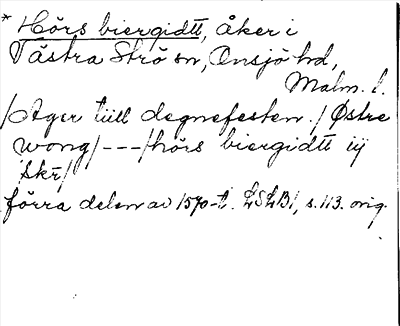 * Hörs biergidtt, åker i
Västra Strö sn, Onsjö hd,
Malm. l.
/Ager tiill degnefesten./Østre
wong/---/hörs biergidtt iij
skr/
förra delen av 1570-t. LSLB1, s. 113. orig.